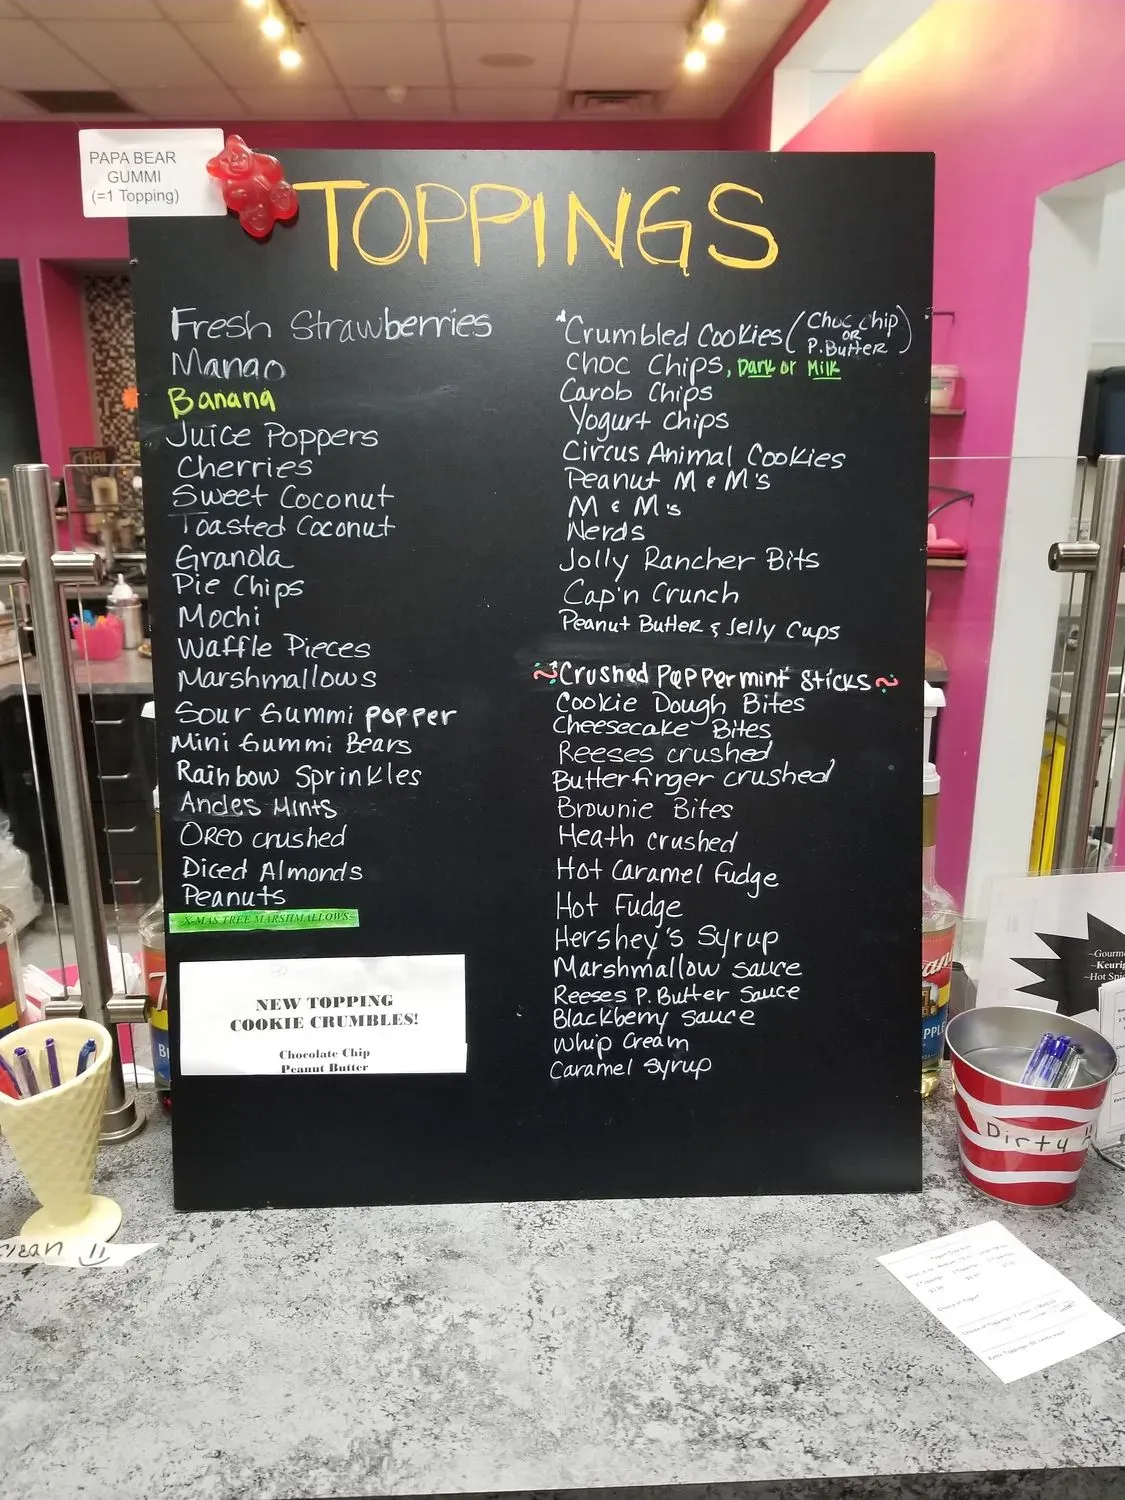 PAPA BEAR
GUMMI
(=1 Topping)
TOPPINGS
Fresh Strawberries
Mango
Banana
Juice Poppers
Cherries
Sweet Coconut
Toasted Coconut
Granola
Pie Chips
Mochi
Waffle Pieces
Marshmallows
Sour Gummi Popper
Mini Gummi Bears
Rainbow Sprinkles
Andes Mints
Oreo crushed
Diced Almonds
Peanuts
X-MAS TREE MARSHMALLOWS~
NEW TOPPING
COOKIE CRUMBLES!
Chocolate Chip
Peanut Butter
Crumbled Cookies (Choc chip OR P. Butter)
Choc Chips, Dark or Milk
Carob Chips
Yogurt Chips
Circus Animal Cookies
Peanut M & M's
M & M's
Nerds
Jolly Rancher Bits
Cap'n Crunch
Peanut Butter & Jelly Cups
Crushed Peppermint Sticks
Cookie Dough Bites
Cheesecake Bites
Reeses crushed
Butterfinger crushed
Brownie Bites
Heath crushed
Hot Caramel Fudge
Hot Fudge
Hershey's Syrup
Marshmallow sauce
Reeses P. Butter Sauce
Blackberry sauce
Whip Cream
Caramel syrup
CHAI
~Gourm
~Keurig
~Hot Spic
Dirty !!
Clean
Extra Toppings